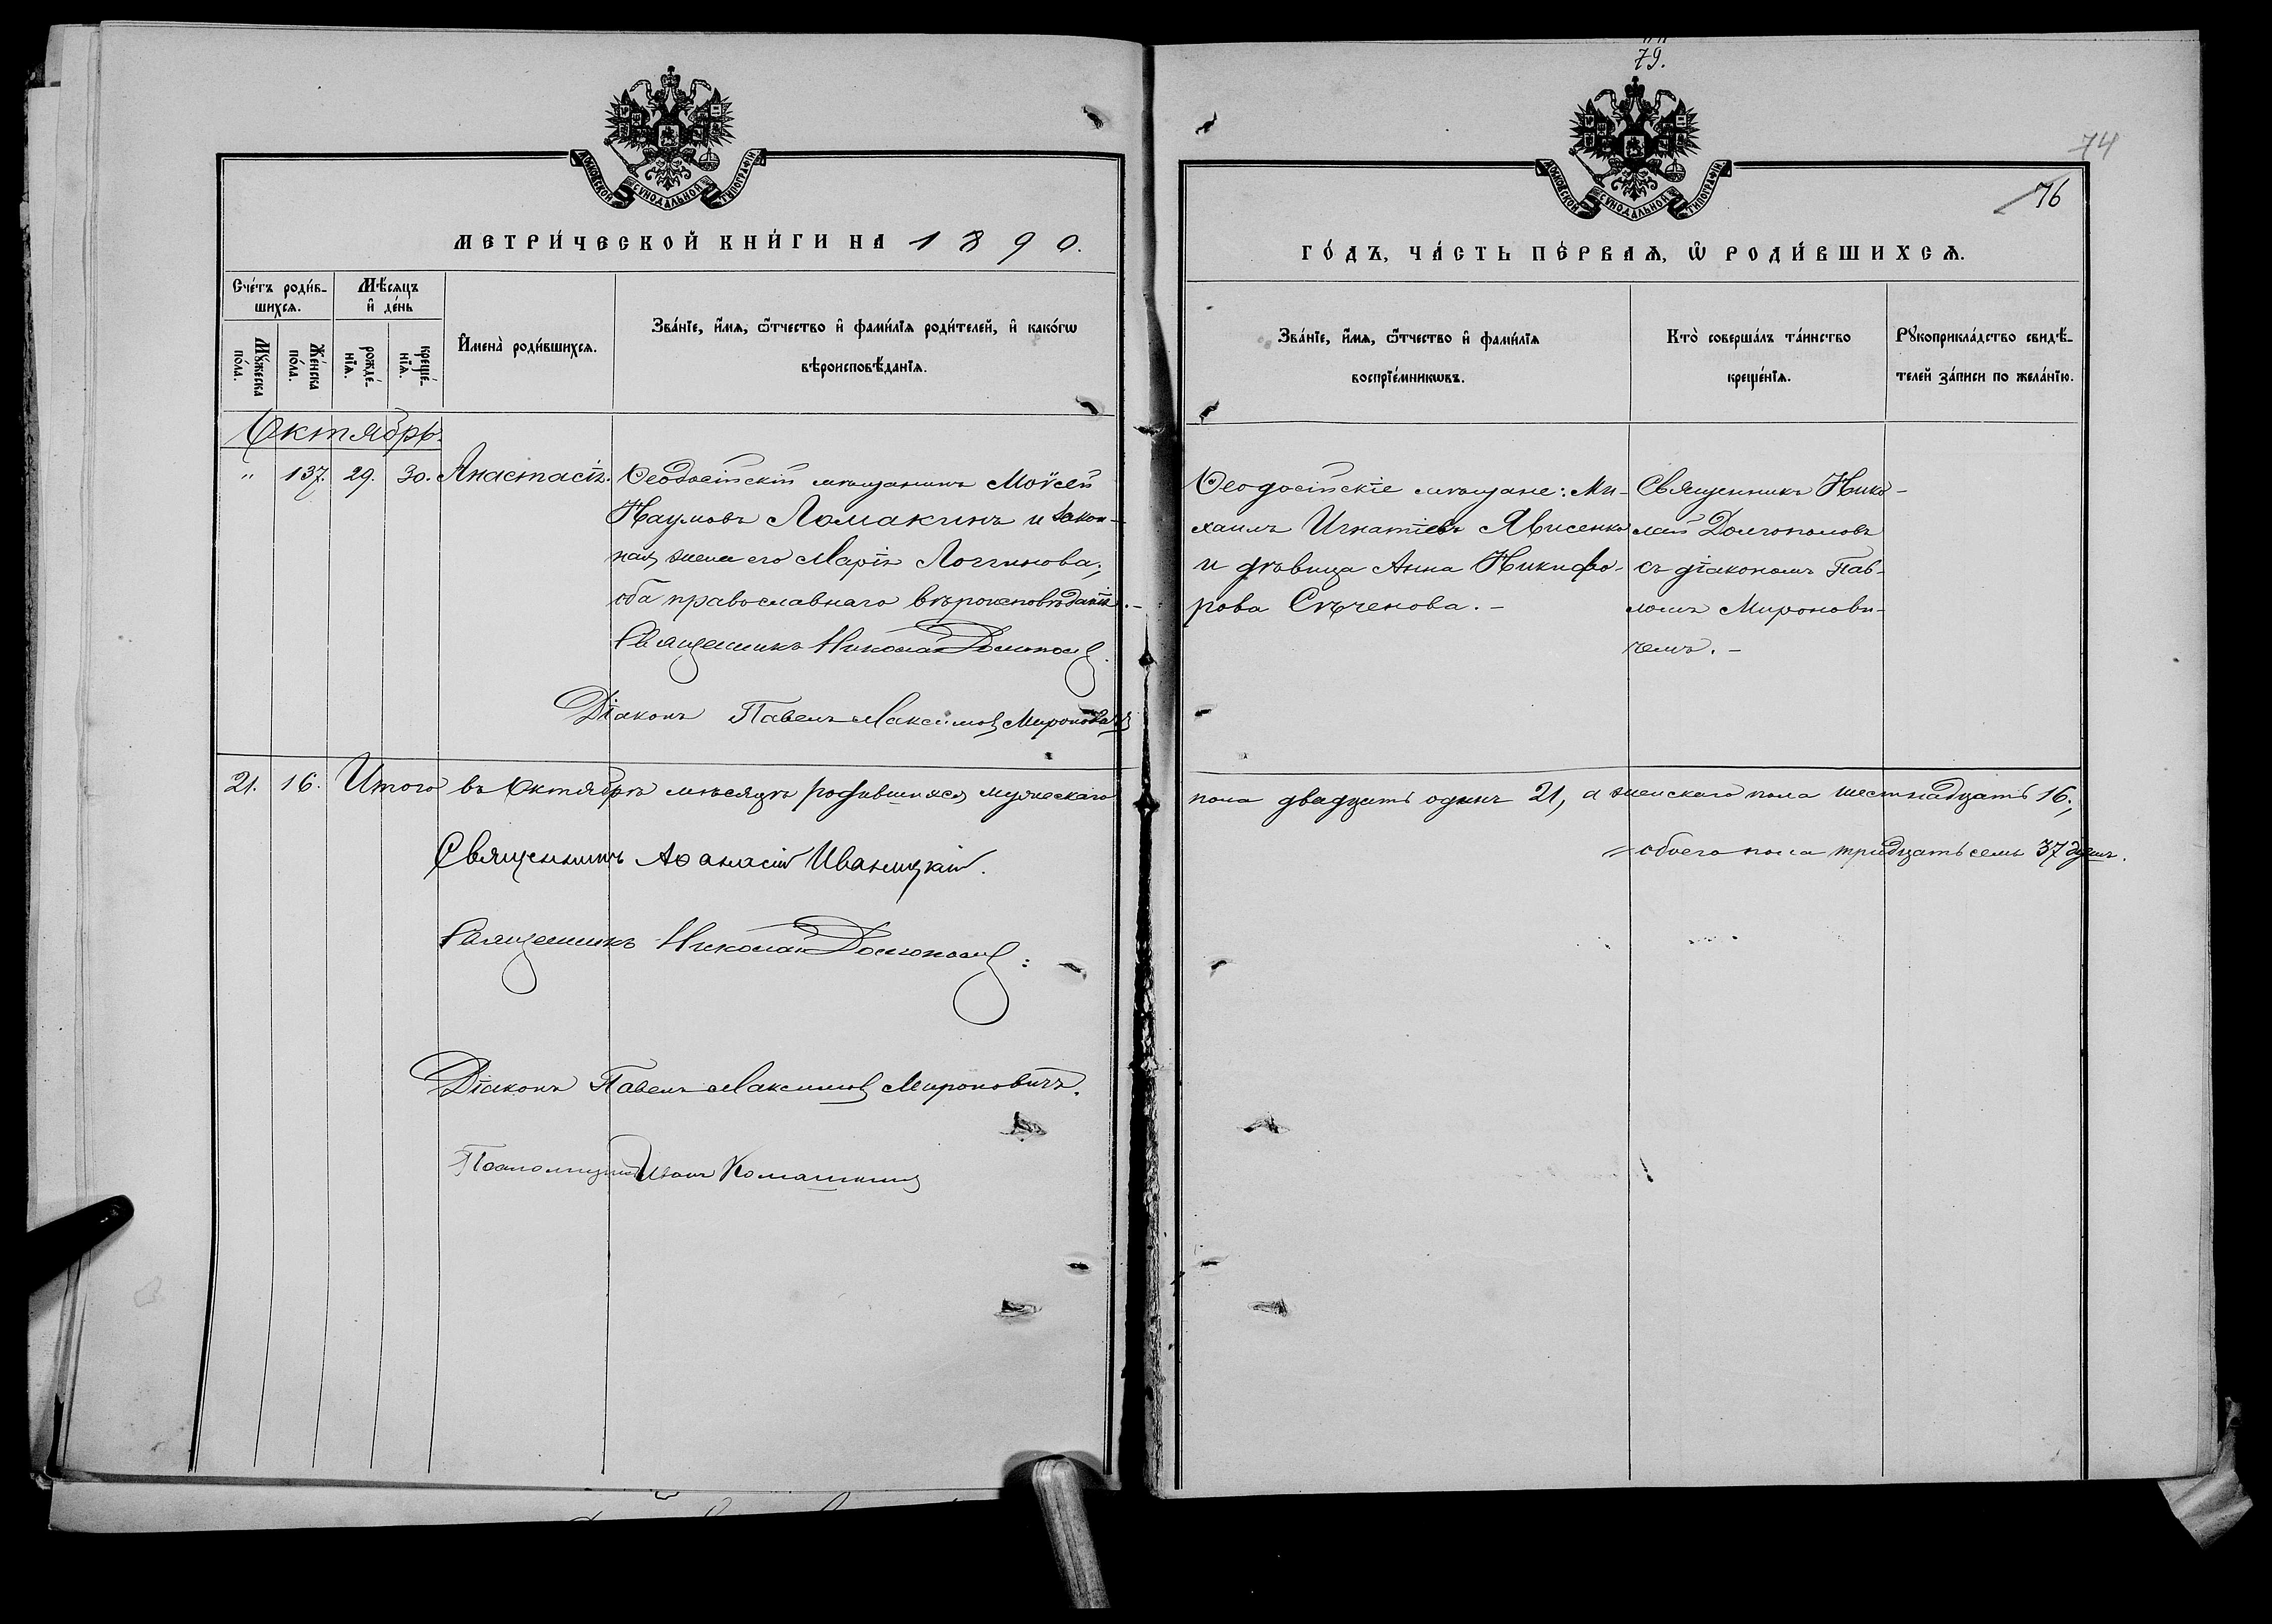 79.
74
76
МОСКОВСКОЙ СѴНОДАЛЬНОЙ ТИПОГРАФІИ
МОСКОВСКОЙ СѴНОДАЛЬНОЙ ТИПОГРАФІИ
МЕТРИ́ЧЕСКОЙ КНИ́ГИ НА 1890.
ГО́ДЪ, ЧА́СТЬ ПЕ́РВАѦ, Ѡ҆ РОДИ́ВШИХСѦ.
Сче́тъ роди́в-
шихсѧ.
Мѣ́сяцъ
и҆ де́нь
Мꙋ́жеска
по́ла.
Же́нска
по́ла.
рожде́-
нїѧ.
креще́-
нїѧ.
И҆мена̀ роди́вшихсѧ.
Зва́нїе, и҆́мѧ, ѻ҆́тчество и҆ фами́лїѧ роди́телей, и҆ како́гѡ
вѣроисповѣ́данїѧ.
Зва́нїе, и҆́мѧ, ѻ҆́тчество и҆ фами́лїѧ
воспрїе́мникѡвъ.
Кто̀ соверша́лъ та́инство
креще́нїѧ.
Рꙋкоприкла́дство свидѣ́-
телей за́писи по жела́нїю.
Октябрь.
" 137. 29. 30. Анастасія. Ѳеодосійскій мѣщанинъ Моѵсей
Наумовъ Ломакинъ и закон-
ная жена его Марія Логгинова;
оба православнаго вѣроисповѣданія.-
Священникъ Николай Долгополов.
Діаконъ Павелъ Максимов Мироновичъ
Ѳеодосійскіе мѣщане: Ми-
хаилъ Игнатіевъ Явисенко
и дѣвица Анна Никифо-
рова Сѣченова.-
Священникъ Нико-
лай Долгополовъ
съ діакономъ Пав-
ломъ Миронови-
чемъ.-
21. 16. Итого въ Октябрѣ мѣсяцѣ родившихся мужескаго
пола двадцать одинъ 21, а женскаго пола шестнадцать 16;
обоего пола тридцать семь 37 душъ.
Священникъ Аѳанасій Иваницкій.
Священникъ Николай Долгополов:
Діаконъ Павелъ Максимов Мироновичъ.
Псаломщикъ Иванъ